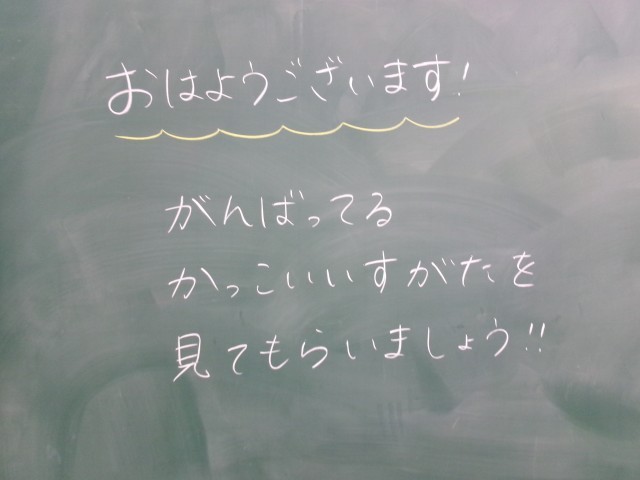 おはようございます!
がんばってる
かっこいいすがたを
見てもらいましょう!!